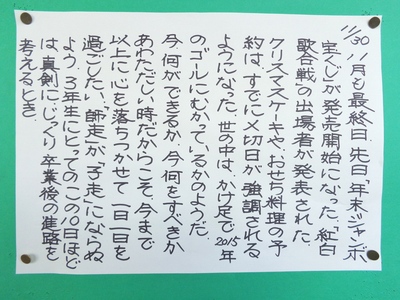 11/30 11月も最終日。先日「年末ジャンボ
宝くじ」が発売開始になった。「紅白
歌合戦」の出場者が発表された。
クリスマスケーキや、おせち料理の予
約は、すでに〆切日が強調される
ようになった。世の中は、かけ足で2015年
のゴールにむかっているかのようだ。
今、何ができるか、今、何をすべきか
あわただしい時だからこそ、今まで
以上に心を落ちつかせて一日一日を
過ごしたい。「師走」が「子走」にならぬ
よう。3年生にとってのこの10日ほど
は、真剣に、じっくり卒業後の進路を
考えるとき。